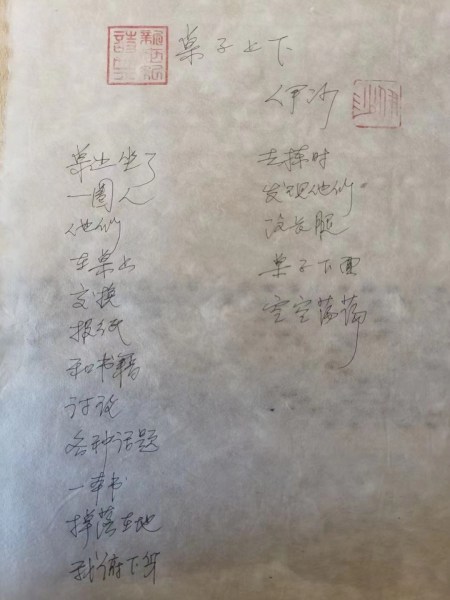 新世紀詩典
桌子上下
伊沙
桌上坐了
一圈人
他们
在桌上
交换
报纸
和书籍
讨论
各种话题
一本书
掉落在地
我俯下身
去捡时
发现他们
没长腿
桌子下面
空空荡荡